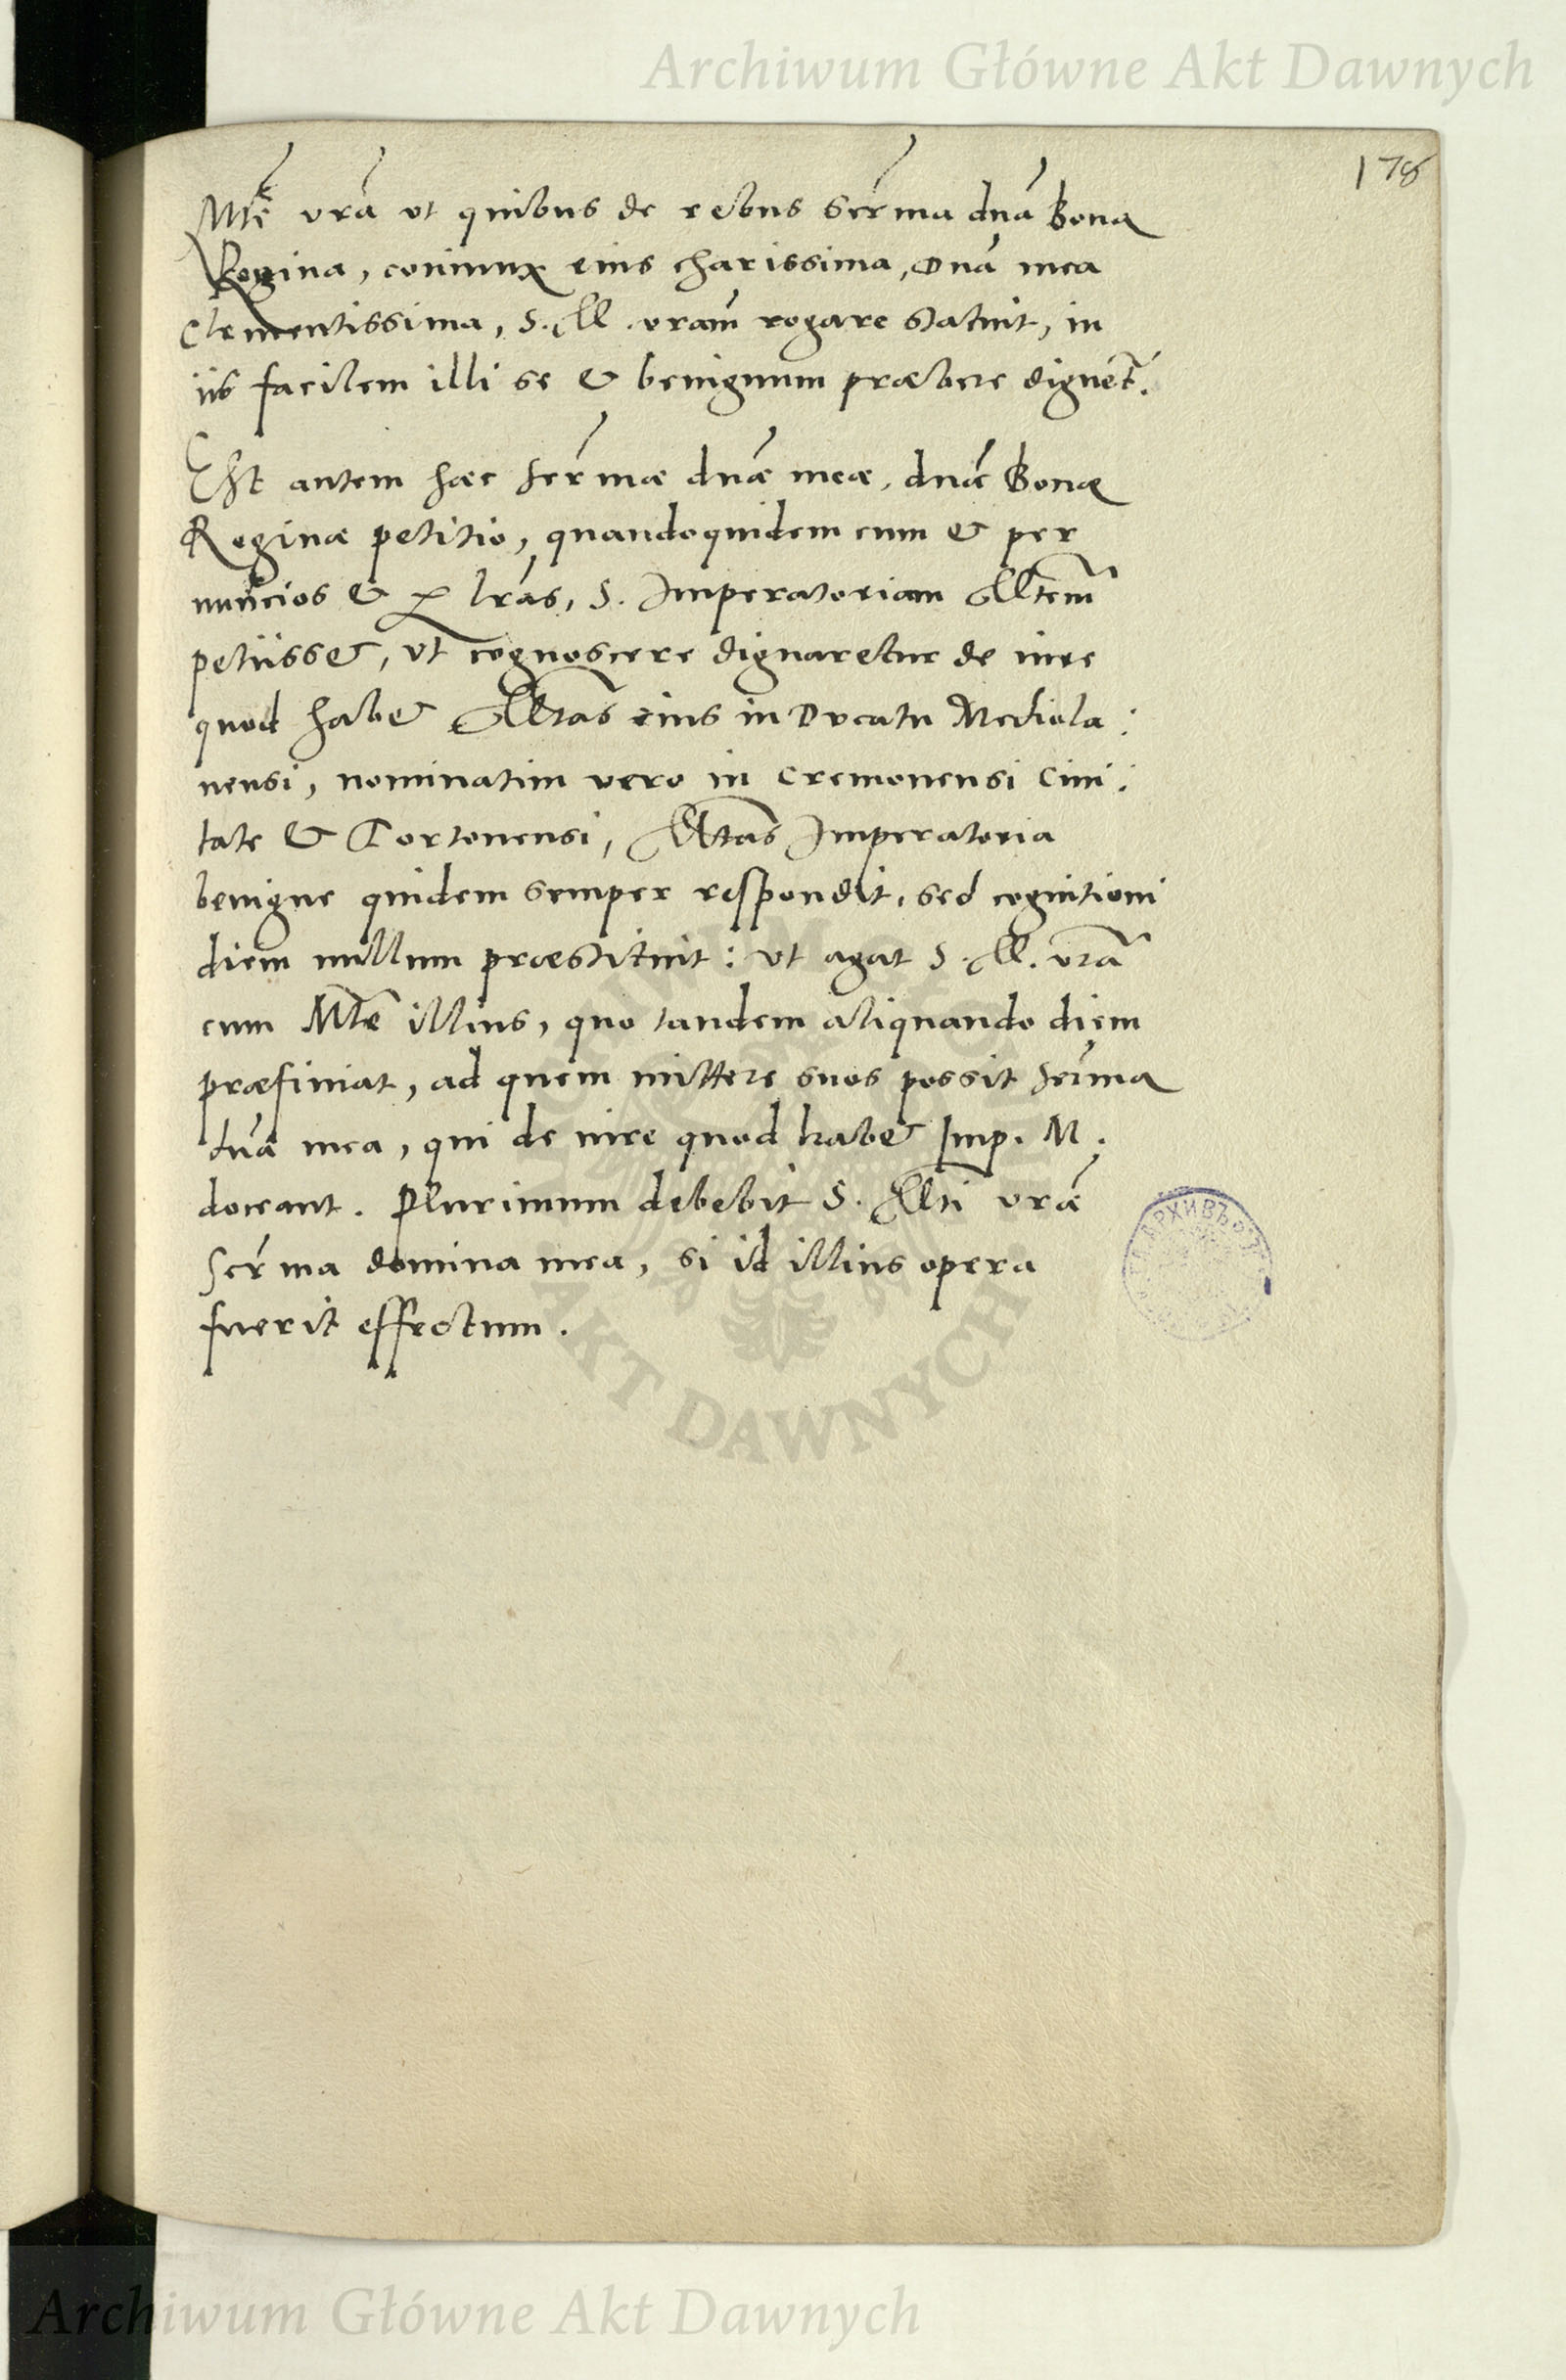 Archiwum Główne Akt Dawnych
178
Mtē vrā ut quibus de rebus Serma dnā Bona
Regina, coniunx eius charissima, Dnā mea
Clementissima, S. M. vram̄ rogare statuit, in
iis facilem illi se & benignum præbere dignet̄.
Est autem hæc Sermæ dnæ meæ, dnæ Bonæ
Reginæ petitio, quandoquidem cum & per
nuncios & p lrās, S. Imperatoriam Mtem̄
petiisset, ut cognoscere dignaretur de iure
quod habet Mtas̄ eius in Ducatu Mediola:
nensi, nominatim vero in Cremonensi Civi:
tate & Tortonensi, Mtas̄ Imperatoria
benigne quidem semper respondit, sed cognitioni
diem nullum præstituit: ut agat S. M. vrā
cum Mtē illius, quo tandem aliquando diem
præfiniat, ad quem mittere suos possit Serma
dnā mea, qui de iure quod habet Imp. M.
doceant. Plurimum debebit S. Mti vræ
Serma domina mea, si id illius opera
fuerit effectum.
АРХИВЪ
AKT DAWNYCH
Archiwum Główne Akt Dawnych